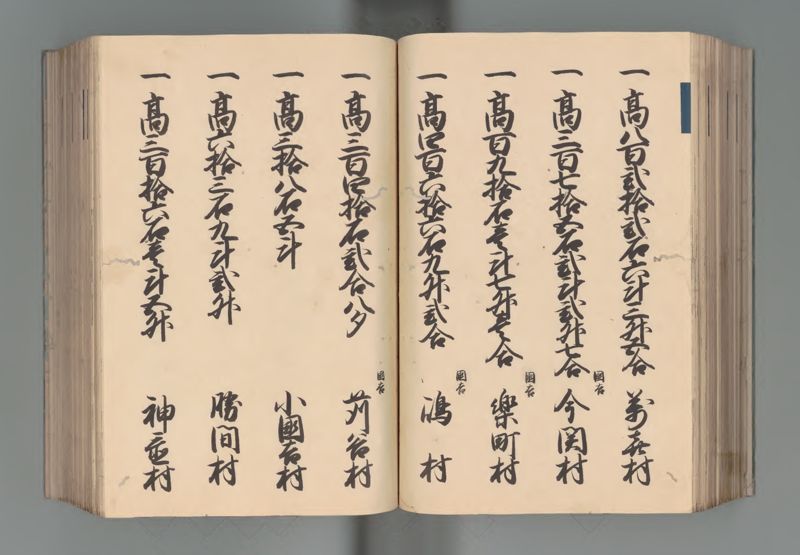 一 高八百弐拾弐石六斗三升五合 万喜村
一 高三百七拾五石弐斗弐升七合 国吉 今関村
一 高百九拾石壱斗七升壱合 国吉 楽町村
一 高四百六拾六石九升弐合 国吉 鴻村
一 高三百四拾石弐合八夕 国吉 苅谷村
一 高三拾八石五斗 小国吉村
一 高六拾三石九斗弐升 勝間村
一 高三百拾六石壱斗五升 神置村